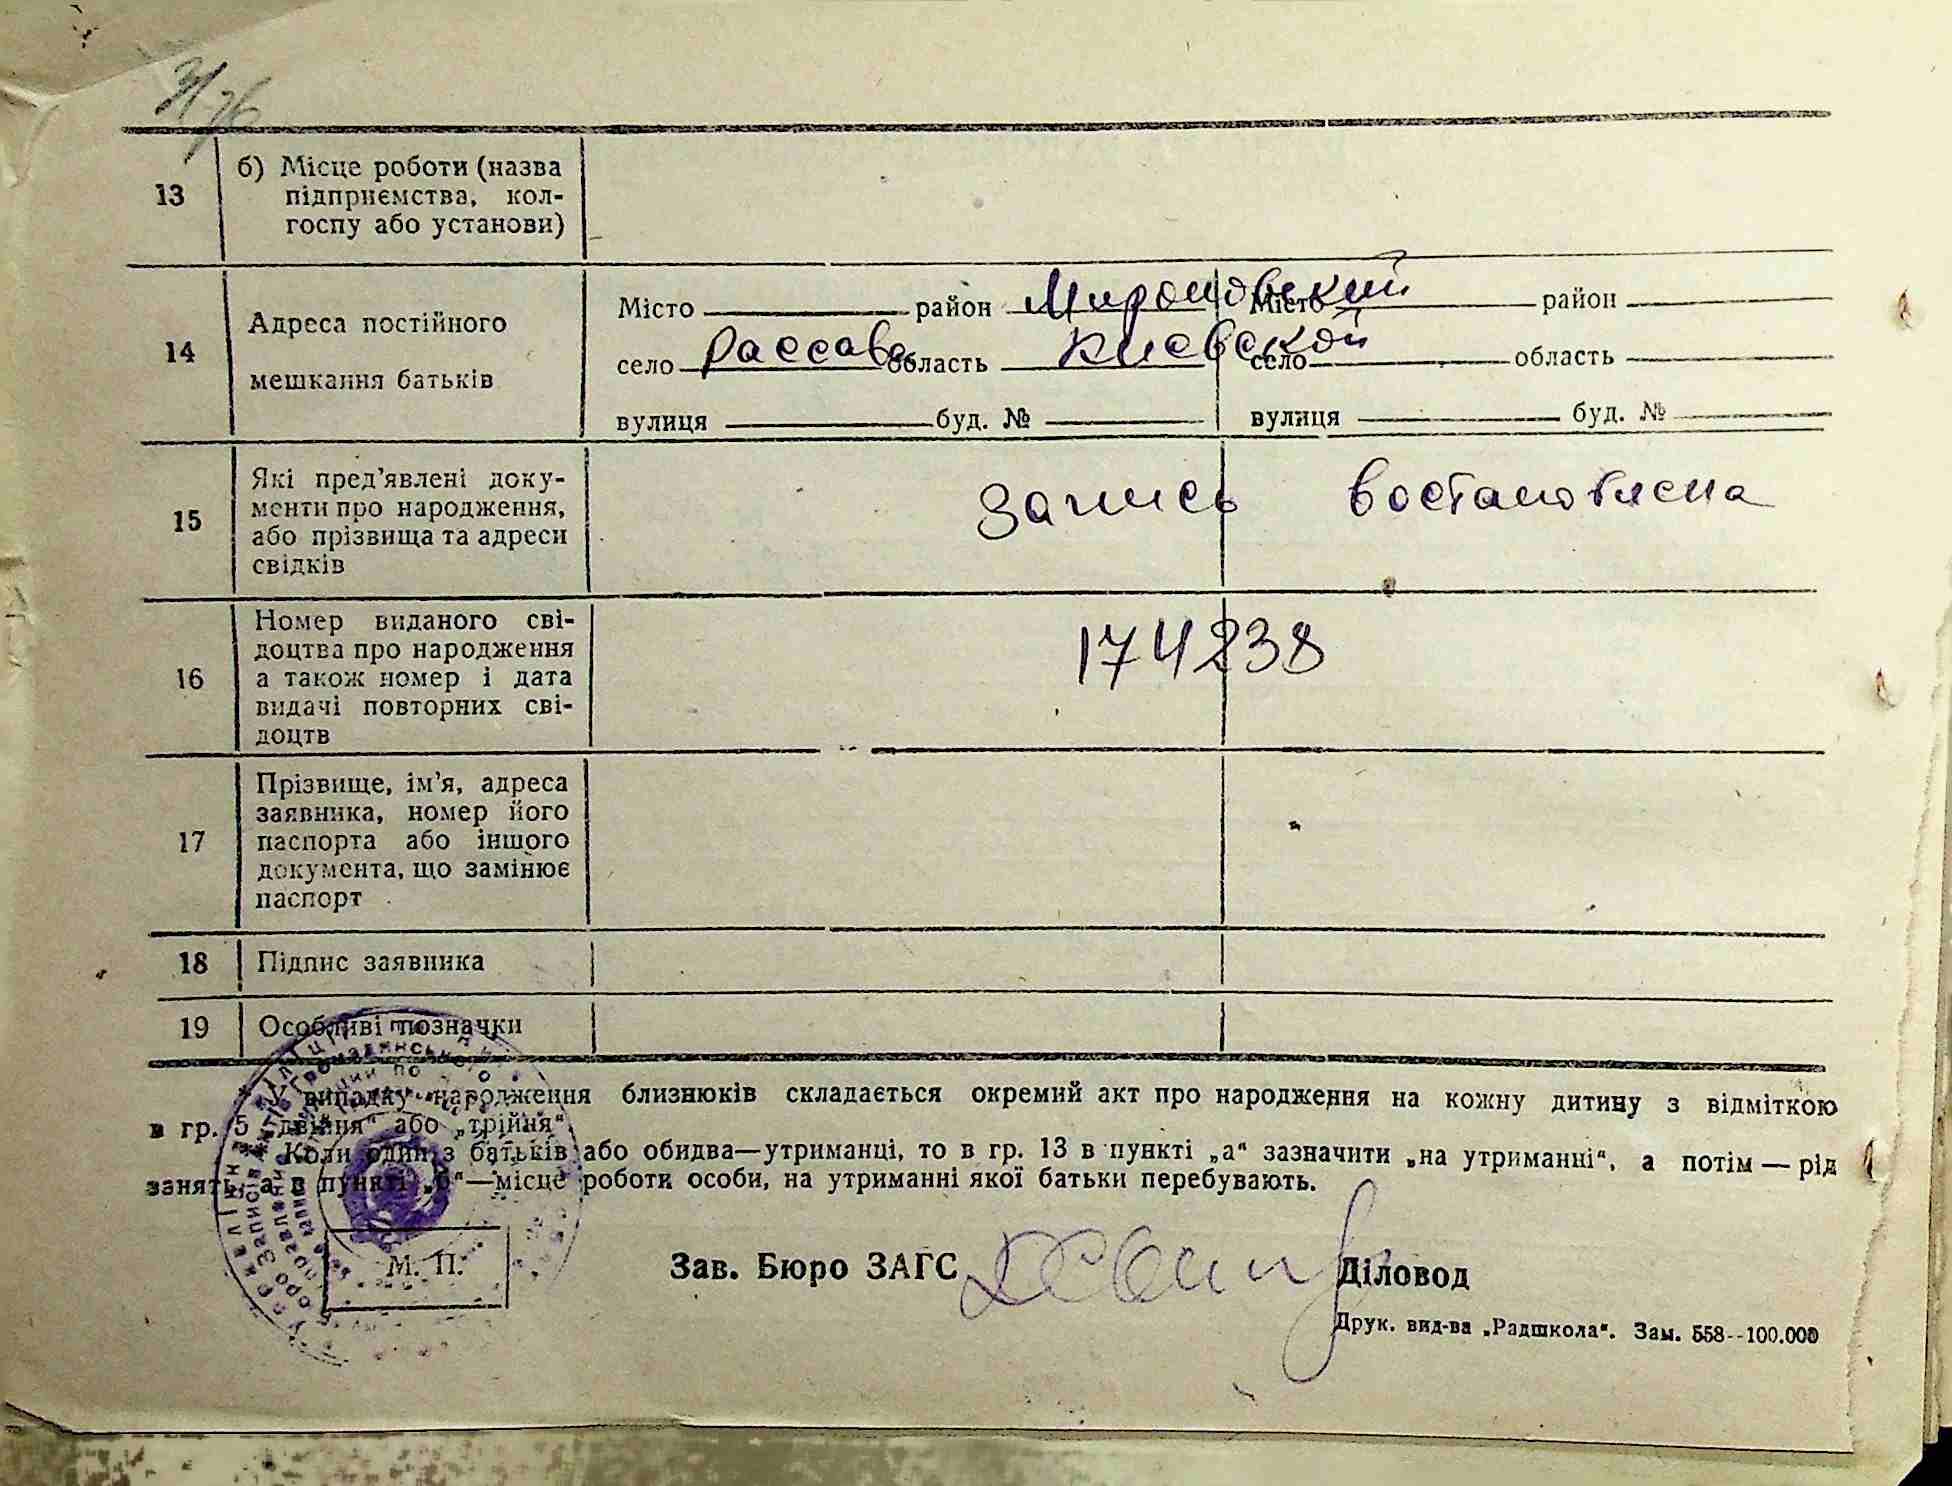 31/76
13
б) Місце роботи (назва
підприємства, кол-
госпу або установи)
14
Адреса постійного
мешкання батьків
Місто район Мироновский Місто район
село Рассава область Киевской село область
вулиця буд. № вулиця буд. №
15
Які пред'явлені доку-
менти про народження,
або прізвища та адреси
свідків
Запись востановлена
16
Номер виданого сві-
доцтва про народження
а також номер і дата
видачі повторних сві-
доцтв
174238
17
Прізвище, ім'я, адреса
заявника, номер його
паспорта або іншого
документа, що замінює
паспорт
18 Підпис заявника
19 Особливі позначки
У випадку народження близнюків складається окремий акт про народження на кожну дитину з відміткою
в гр. 5 „двійня“ або „трійня“.
Коли один з батьків або обидва—утриманці, то в гр. 13 в пункті „а“ зазначити „на утриманні“, а потім — рід
занять, а в пункті „б“—місце роботи особи, на утриманні якої батьки перебувають.
М. П.
Зав. Бюро ЗАГС Діловод
Друк. вид-ва „Радшкола“. Зам. 558--100.000